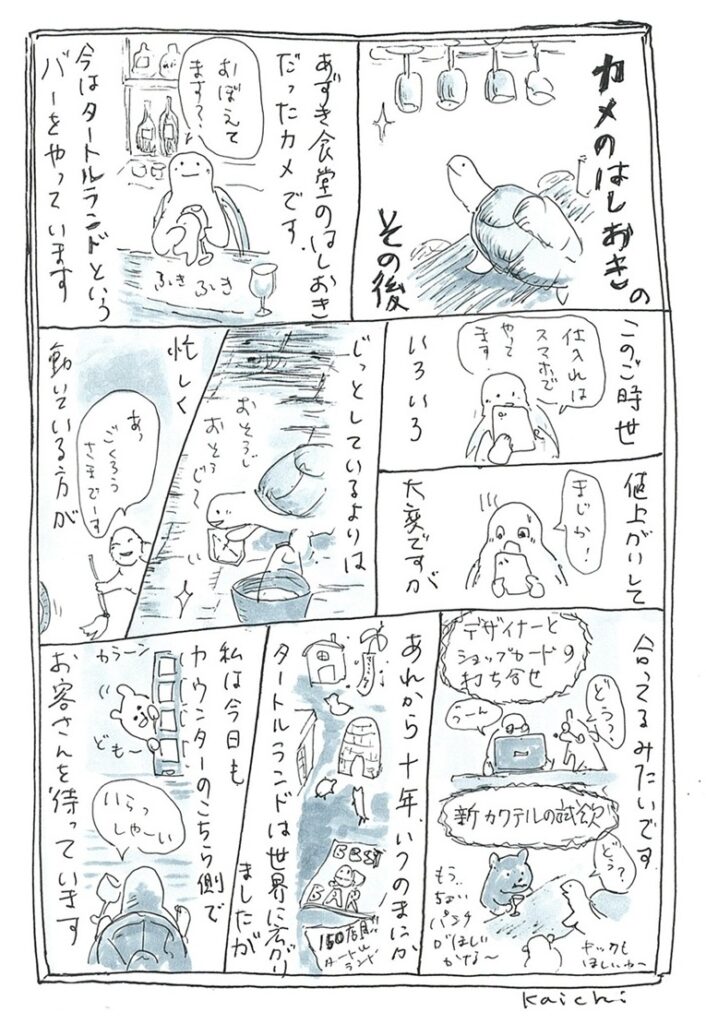 カメのはしおきの
その後
あずき食堂のはしおき
だったカメです。
おぼえて
ます?
ふき ふき
今はタートルランドという
バーをやっています
このご時世
仕入れは
スマホで
やって
ます
いろいろ
値上がいして
まじか!
大変ですが
じっとしているよりは
おそうじ
おそうじ〜
忙しく
動いている方が
あっ
ごくろう
さまでーす
合ってるみたいです
デザイナーと
ショップカードの
打ち合せ
どう?
うーん
新カクテルの試飲
どう?
もう、
ちょい
パンチ
がほしい
かな〜
キックも
ほしいわ〜
あれから十年、いつのまにか
タートルランドは世界に広がり
ましたが
BEST
BAR
150店目
タートル
ランド
私は今日も
カウンターのこちら側で
お客さんを待っています
カラーン
ども〜
いらっ
しゃーい
Kaichi